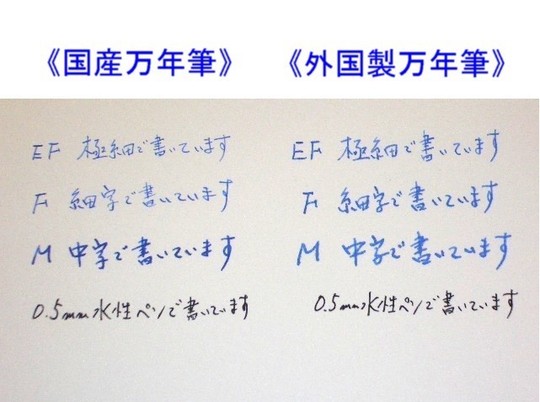 《国産万年筆》
EF 極細で書いています
F 細字で書いています
M 中字で書いています
0.5mm水性ペンで書いています
《外国製万年筆》
EF 極細で書いています
F 細字で書いています
M 中字で書いています
0.5mm水性ペンで書いています